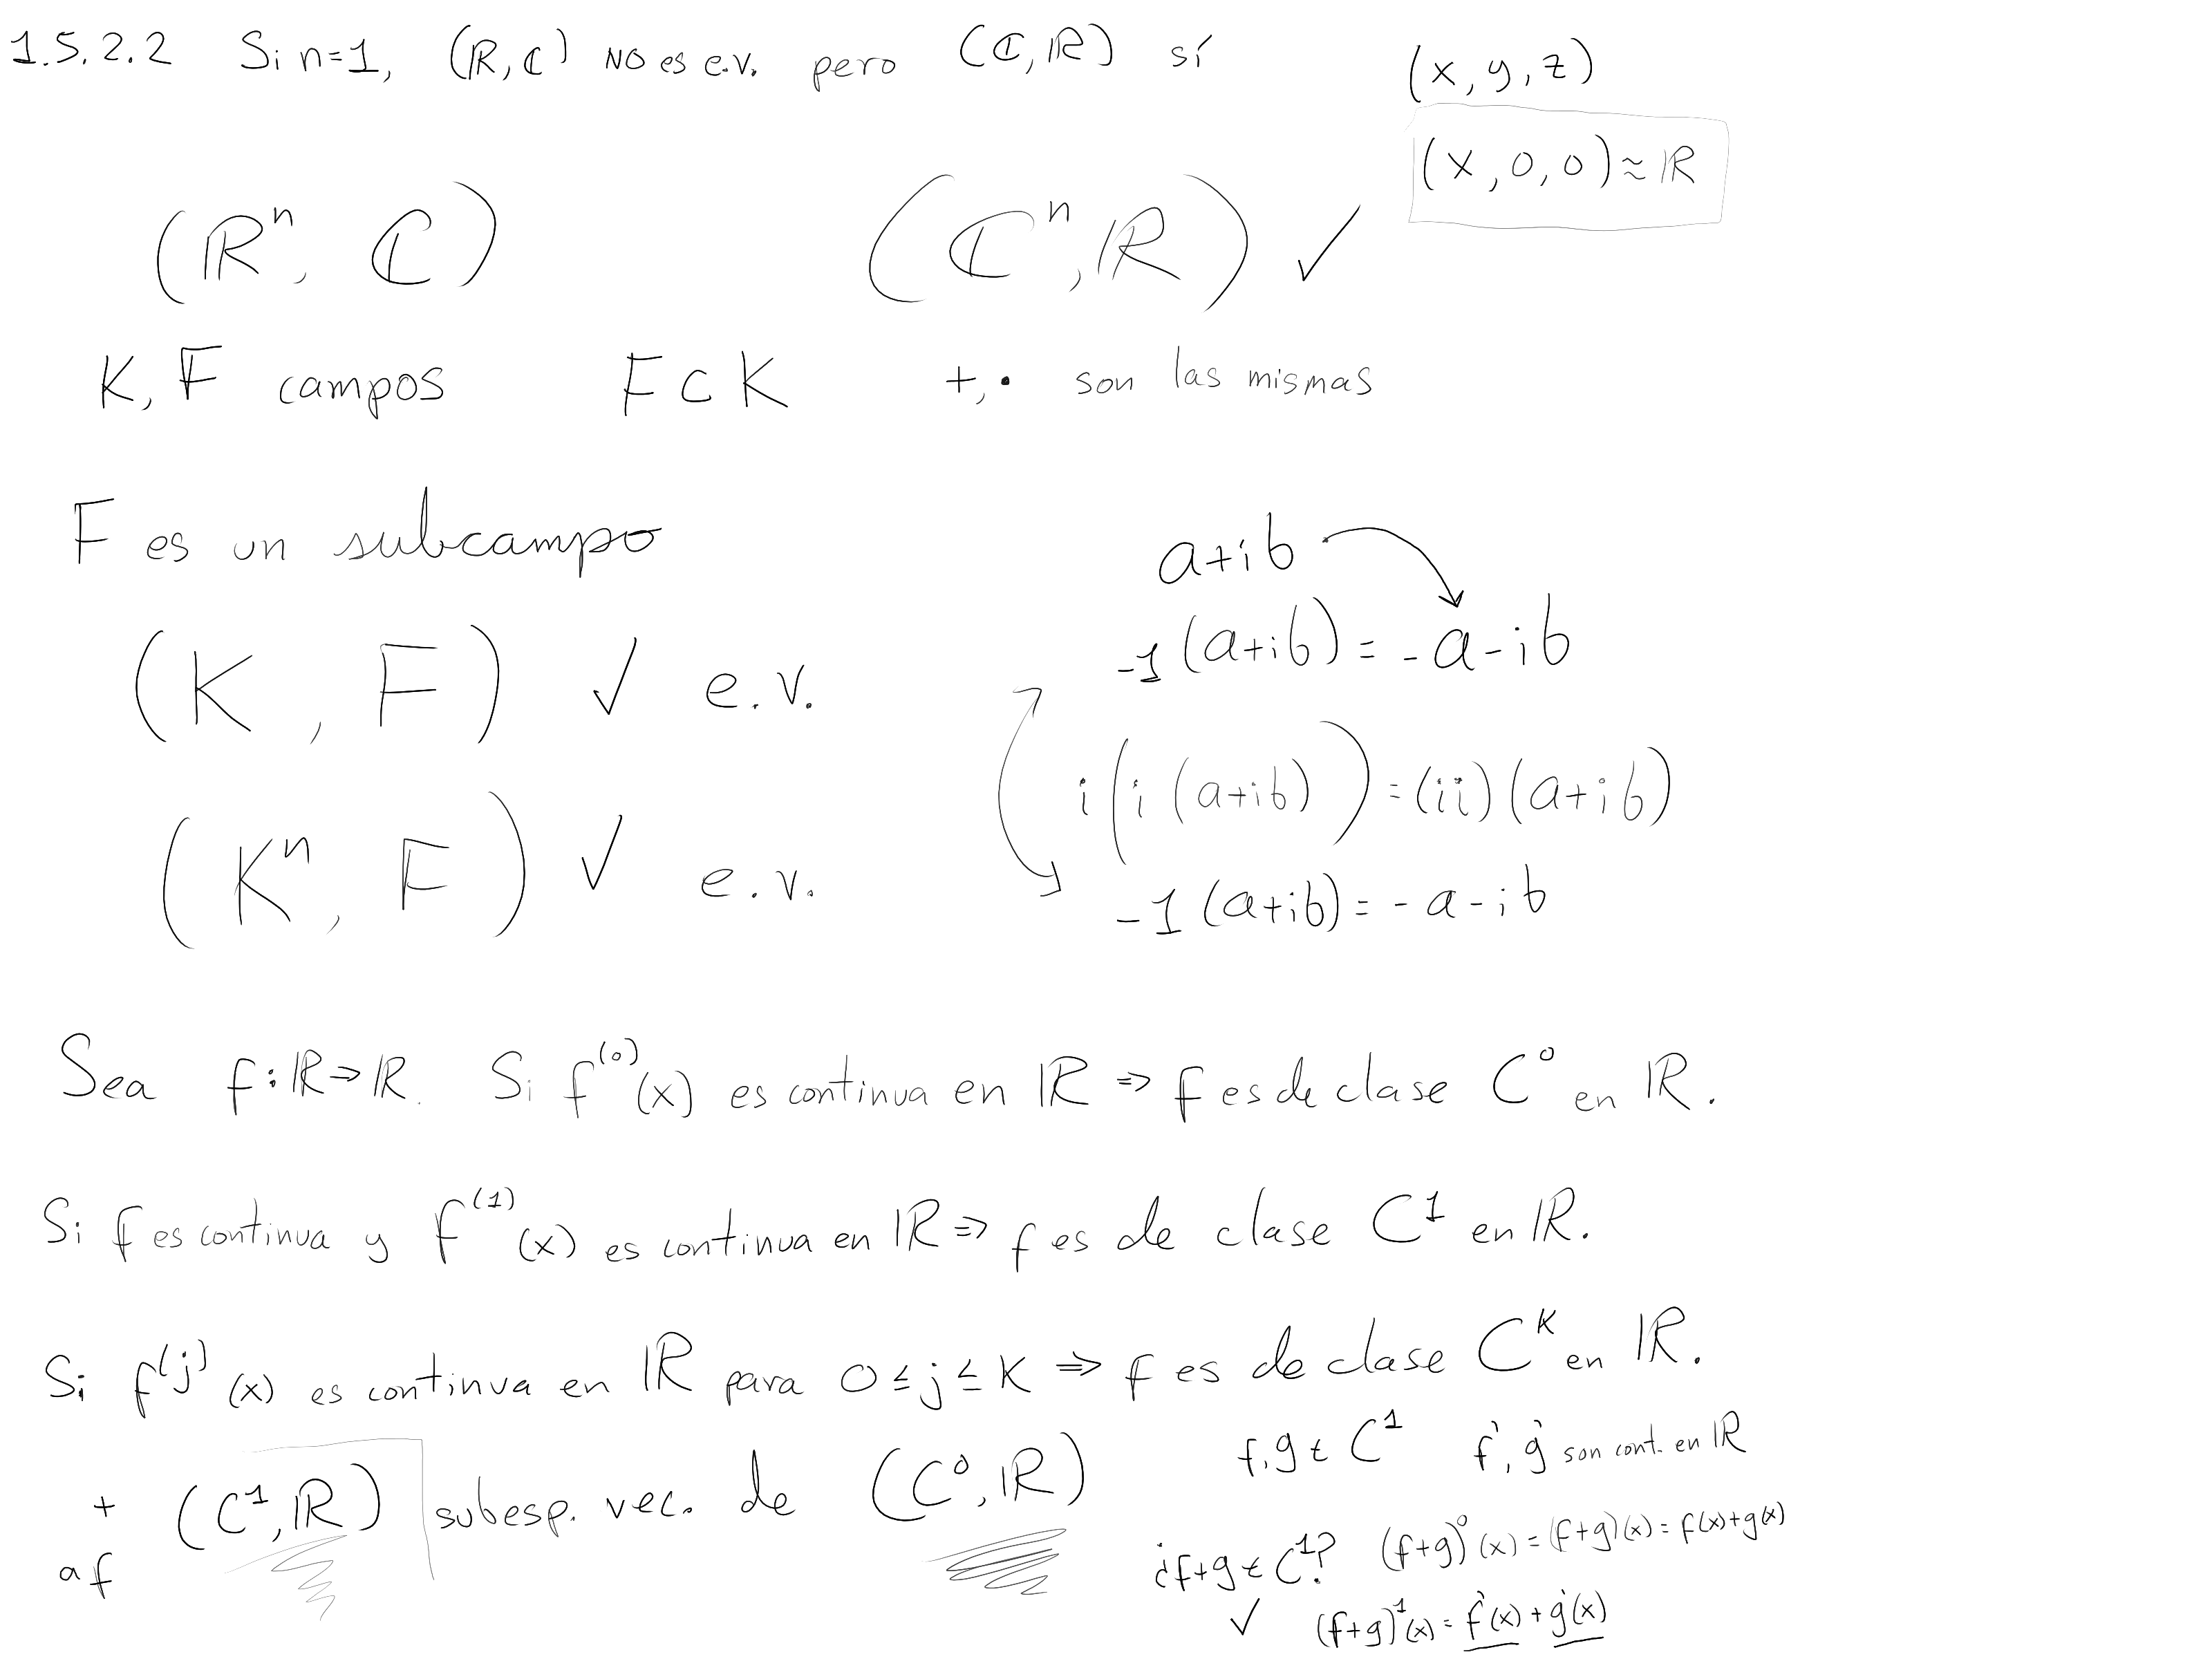 1.5.2.2 Si n=1, (ℝ, ℂ) NO es e.v. pero (ℂ, ℝ) sí
(x, y, z)
(x, 0, 0) ≈ ℝ
(ℝⁿ, ℂ) (ℂⁿ, ℝ) ✓
K, F campos F ⊂ K +, • son las mismas
F es un subcampo
(K, F) ✓ e.v.
(Kⁿ, F) ✓ e.v.
a+ib
-1(a+ib) = -a-ib
i(i(a+ib)) = (ii)(a+ib)
-1(a+ib) = -a-ib
Sea f: ℝ→ℝ. Si f⁽⁰⁾(x) es continua en ℝ ⇒ f es de clase C⁰ en ℝ.
Si f es continua y f⁽¹⁾(x) es continua en ℝ ⇒ f es de clase C¹ en ℝ.
Si f⁽ʲ⁾(x) es continua en ℝ para 0 ≤ j ≤ K ⇒ f es de clase Cᴷ en ℝ.
+ (C¹, ℝ) subesp. vec. de (C⁰, ℝ)
af
f, g ∈ C¹ f', g' son cont. en ℝ
¿f+g ∈ C¹? (f+g)⁰(x) = (f+g)(x) = f(x)+g(x)
✓ (f+g)¹(x) = f'(x) + g'(x)